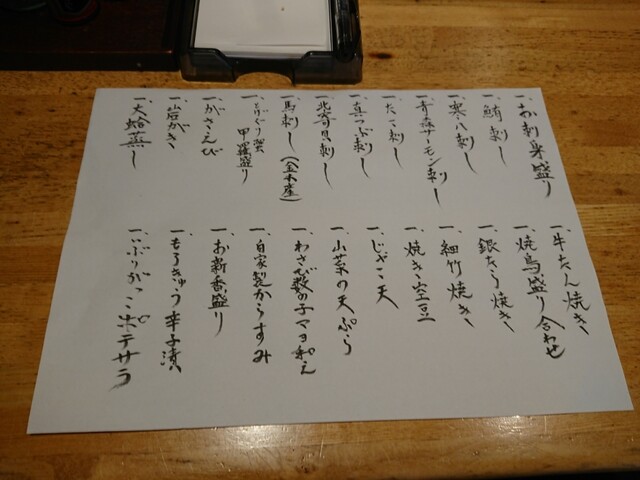 一、お刺身盛り
一、鮪刺し
一、寒八刺し
一、青森サーモン刺し
一、たこ刺し
一、真つぶ刺し
一、北寄貝刺し
一、馬刺し(金木産)
一、とげぐり蟹
甲羅盛り
一、がさえび
一、岩がき
一、大蛤蒸し
一、牛たん焼き
一、焼鳥盛り合わせ
一、銀だら焼き
一、細竹焼き
一、焼き空豆
一、じゃこ天
一、山菜の天ぷら
一、わさび数の子マヨ和え
一、自家製からすみ
一、お新香盛り
一、もろきゅう辛子漬
一、いぶりがっこポテサラ